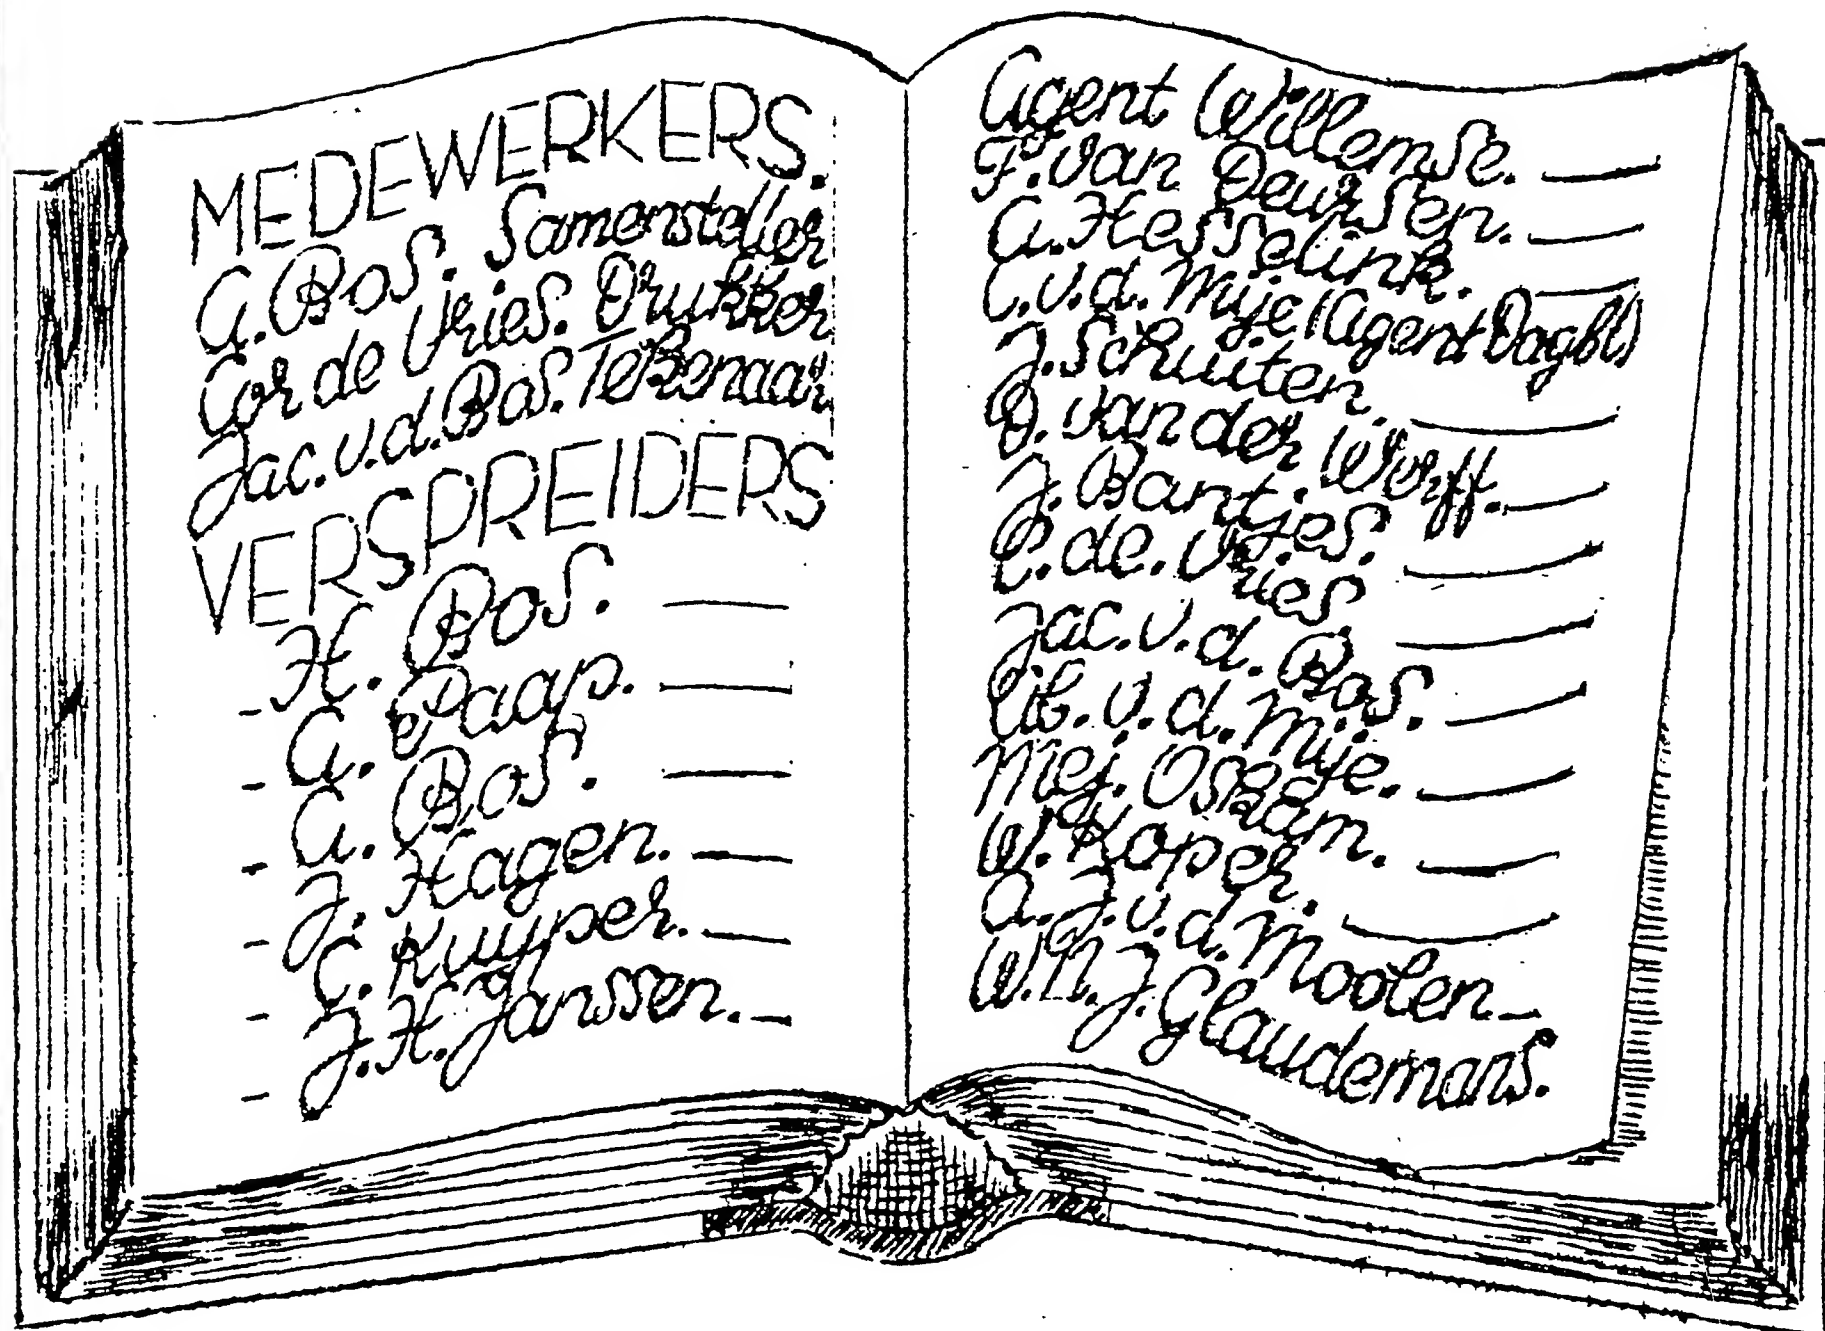 MEDEWERKERS.
G. Bos. Samensteller
Cor de Vries. Drukker
Jac. v.d. Bos. Tekenaar
VERSPREIDERS
- H. Bos. —
- G. Paap. —
- G. Bos. —
- J. Hagen. —
- C. Kuyper. —
- J.H. Janssen. —
Agent Willemse. —
F. van Deursen. —
G. Hesselink. —
C. v.d. Mije (Agent Dagbl)
J. Schuiten. —
D. van der Werff. —
J. Bantjes. —
C. de. Vries —
Jac. v.d. Bos. —
Lib. v.d. Mije. —
Mej. Oskam. —
W. Koper. —
A. J. v.d. Moolen —
W.N.J. Glaudemans.